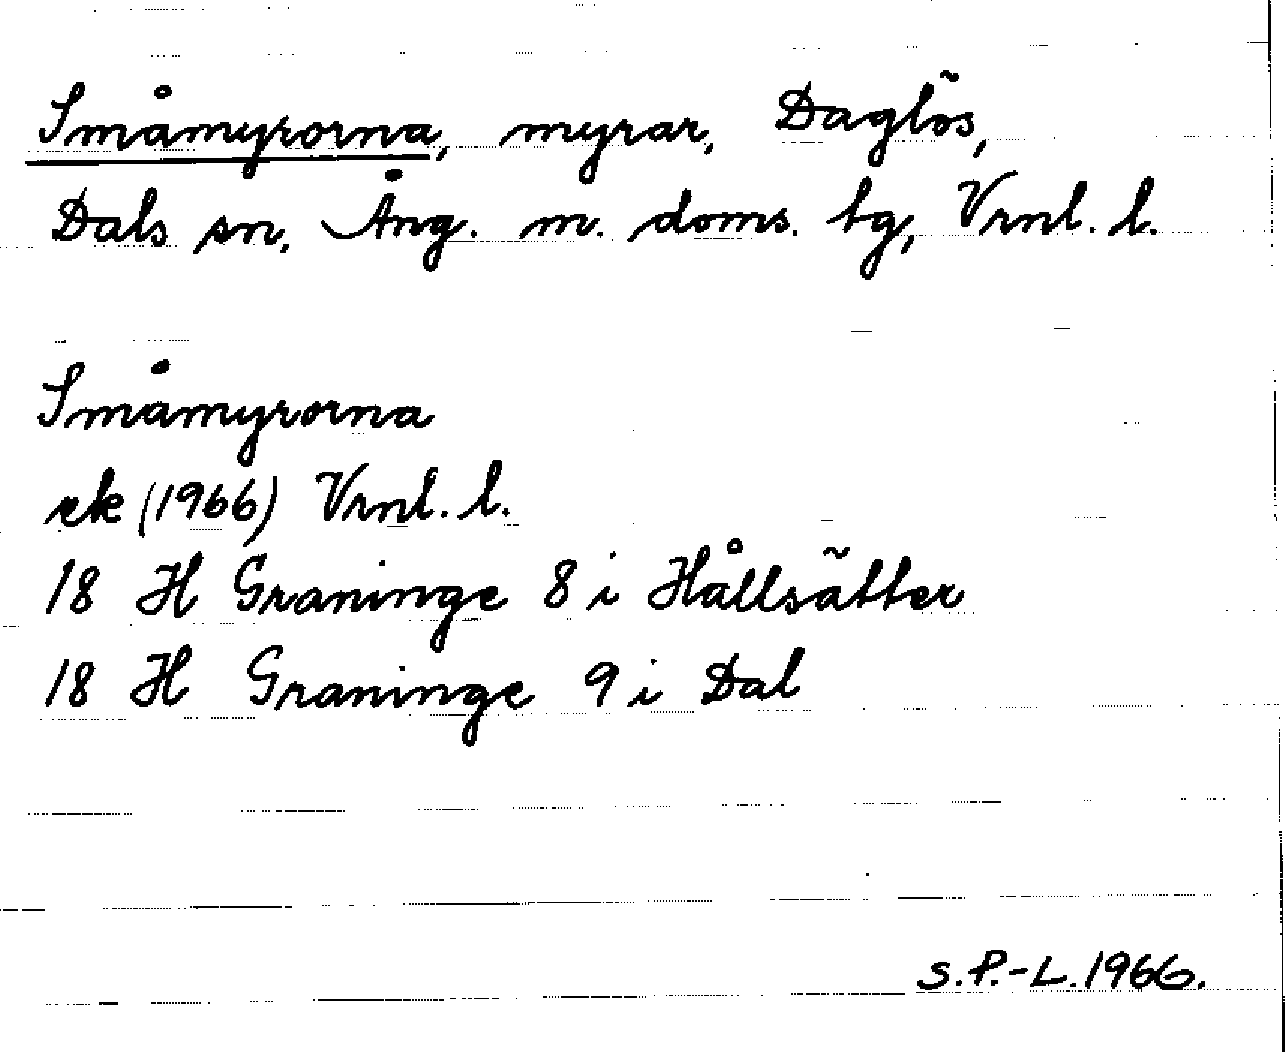 Småmyrorna, myrar, Daglös,
Dals sn, Ång. m. doms. tg, Vrnl. l.
Småmyrorna
ek (1966) Vrnl. l.
18 H Graninge 8 i Hållsätter
18 H Graninge 9 i Dal
S.P.-L. 1966.